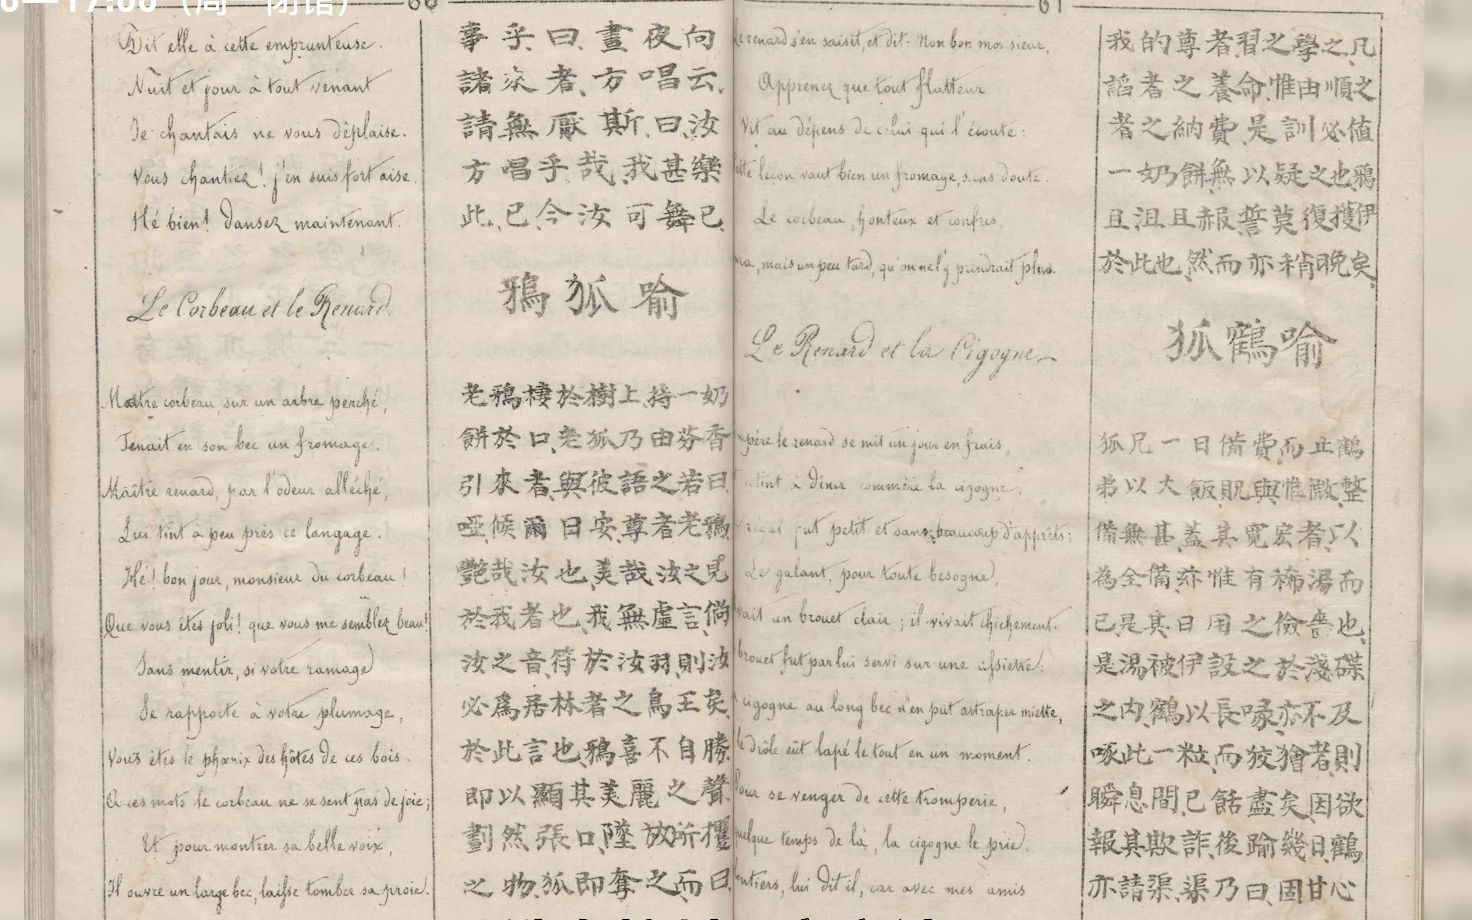 Dit elle à cette emprunteuse.
Nuit et jour à tout venant
Je chantais ne vous déplaise.
Vous chantiez! j'en suis fort aise.
Hé bien! dansez maintenant.
Le Corbeau et le Renard
Maître corbeau, sur un arbre perché,
Tenait en son bec un fromage.
Maître renard, par l'odeur alléché,
Lui tint à peu près ce langage.
Hé! bon jour, monsieur du corbeau!
Que vous êtes joli! que vous me semblez beau!
Sans mentir, si votre ramage
Se rapporte à votre plumage,
Vous êtes le phœnix des hôtes de ces bois.
A ces mots le corbeau ne se sent pas de joie;
Et pour montrer sa belle voix,
Il ouvre un large bec, laisse tomber sa proie.
事乎曰晝夜向
諸來者方唱云
請無厭斯曰汝
方唱乎哉我甚樂
此已今汝可舞已
鴉狐喻
老鴉棲於樹上持一奶
餅於口老狐乃由芬香
引來者與彼語之若曰
啞候爾日安尊者老鴉
艷哉汝也美哉汝之見
於我者也我無虛言倘
汝之音符於汝羽則汝
必為居林者之鳥王矣
於此言也鴉喜不自勝
即以顯其美麗之聲
劃然張口墜放所攫
之物狐即奪之而曰
Le renard s'en saisit, et dit. Mon bon monsieur,
Apprenez que tout flatteur
Vit au dépens de celui qui l'écoute:
Cette leçon vaut bien un fromage, sans doute.
Le corbeau, honteux et confus,
mais un peu tard, qu'on ne l'y prendrait plus.
Le Renard et la Cigogne
le renard se mit un jour en frais,
à dîner commère la cigogne.
fut petit et sans beaucoup d'apprêts:
Le galant, pour toute besogne,
un brouet clair; il vivait chichement.
brouet fut par lui servi sur une assiette:
cigogne au long bec n'en put attraper miette,
le drôle eût lapé le tout en un moment.
Pour se venger de cette tromperie,
quelque temps de là, la cigogne le prie.
lui dit il, car avec mes amis
我的尊者習之學之凡
諂者之養命惟由順之
者之納費是訓必值
一奶餅無以疑之也鴉
且沮且赧誓莫復攫伊
於此也然而亦稍晚矣
狐鶴喻
狐兄一日備費而止鶴
弟以大飯貺與惟微整
備無甚蓋其寬宏者以
為全備亦惟有稀湯而
已是其日用之儉嗇也
是湯被伊設之於淺碟
之內鶴以長喙亦不及
啄此一粒而狡獪者則
瞬息間已餂盡矣因欲
報其欺詐後踰幾日鶴
亦請渠渠乃曰固甘心